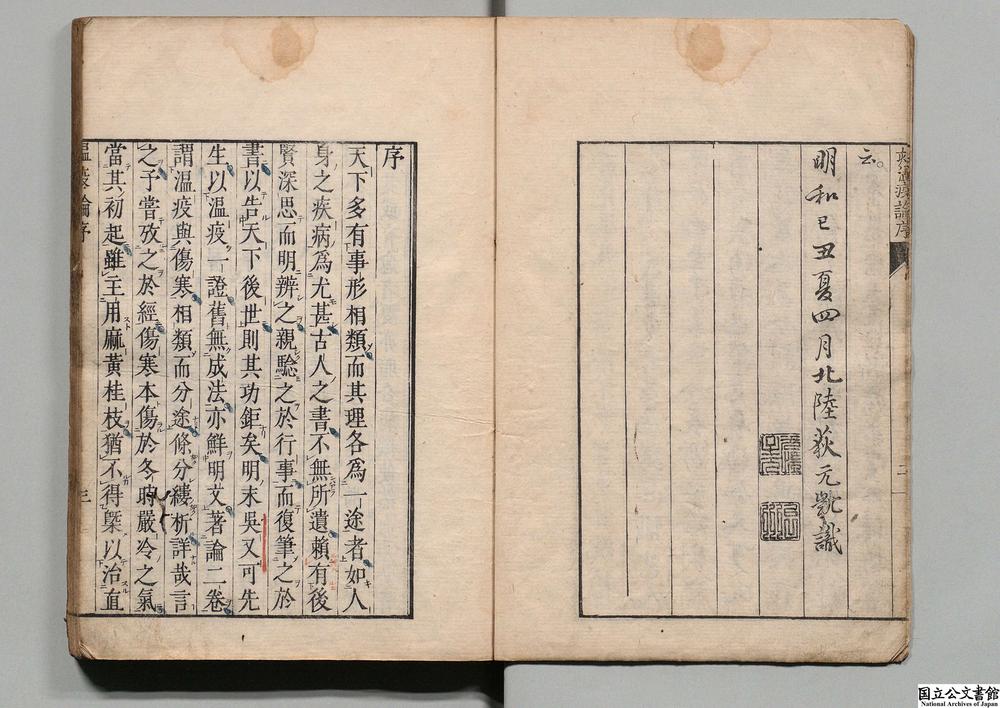 云
明和己丑夏四月北陸荻元凱識
序
天下多有事形相類而其理各爲一途者如人
身之疾病爲尤甚古人之書不無所遺賴有後
賢深思而明辨之親驗之於行事而復筆之於
書以告天下後世則其功鉅矣明末吳又可先
生以溫疫一證舊無成法亦鮮明文著論二卷
謂溫疫與傷寒相類而分途條分縷析詳哉言
之予嘗攷之於經傷寒本傷於冬時嚴冷之氣
當其初起雖主用麻黃桂枝猶不得槩以治直
溫疫論序
三
国立公文書館
National Archives of Japan